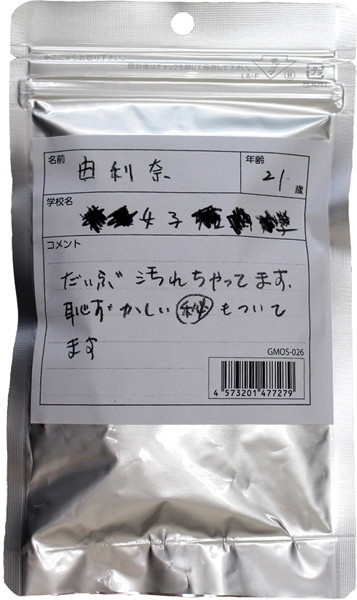 LA-F
名前 由利奈 年齢 21. 歳
学校名 女子
コメント
だいぶ汚れちゃってます、
恥ずかしい㊙もついて
ます
GMOS-026
4 573201 477279